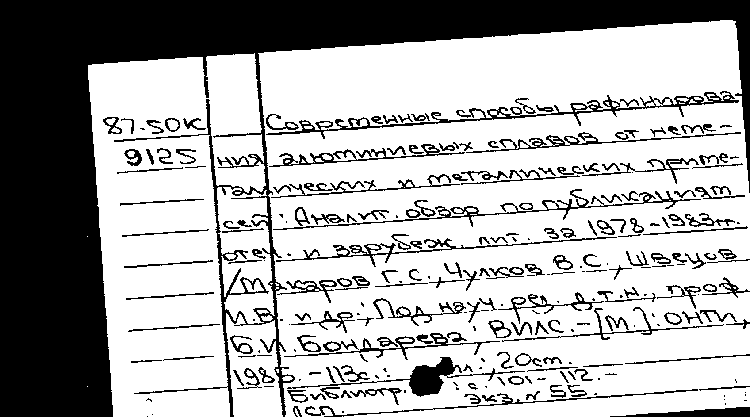 87-50К Современные способы рафинирова-
9125 ния алюминиевых сплавов от неме-
таллических и металлических приме-
сей: Аналит. обзор по публикациям
отеч. и зарубеж. лит. за 1978-1983гг.
/Макаров Г.С., Чулков В.С., Швецов
И.В. и др.; Под науч. ред. д.т.н., проф.
Б.И. Бондарева; ВИЛС. - [М.]: ОНТИ,
1985. - 113с.: ил.; 20см.
Библиогр.: с. 101-112. -
ДСП. экз. N 55.